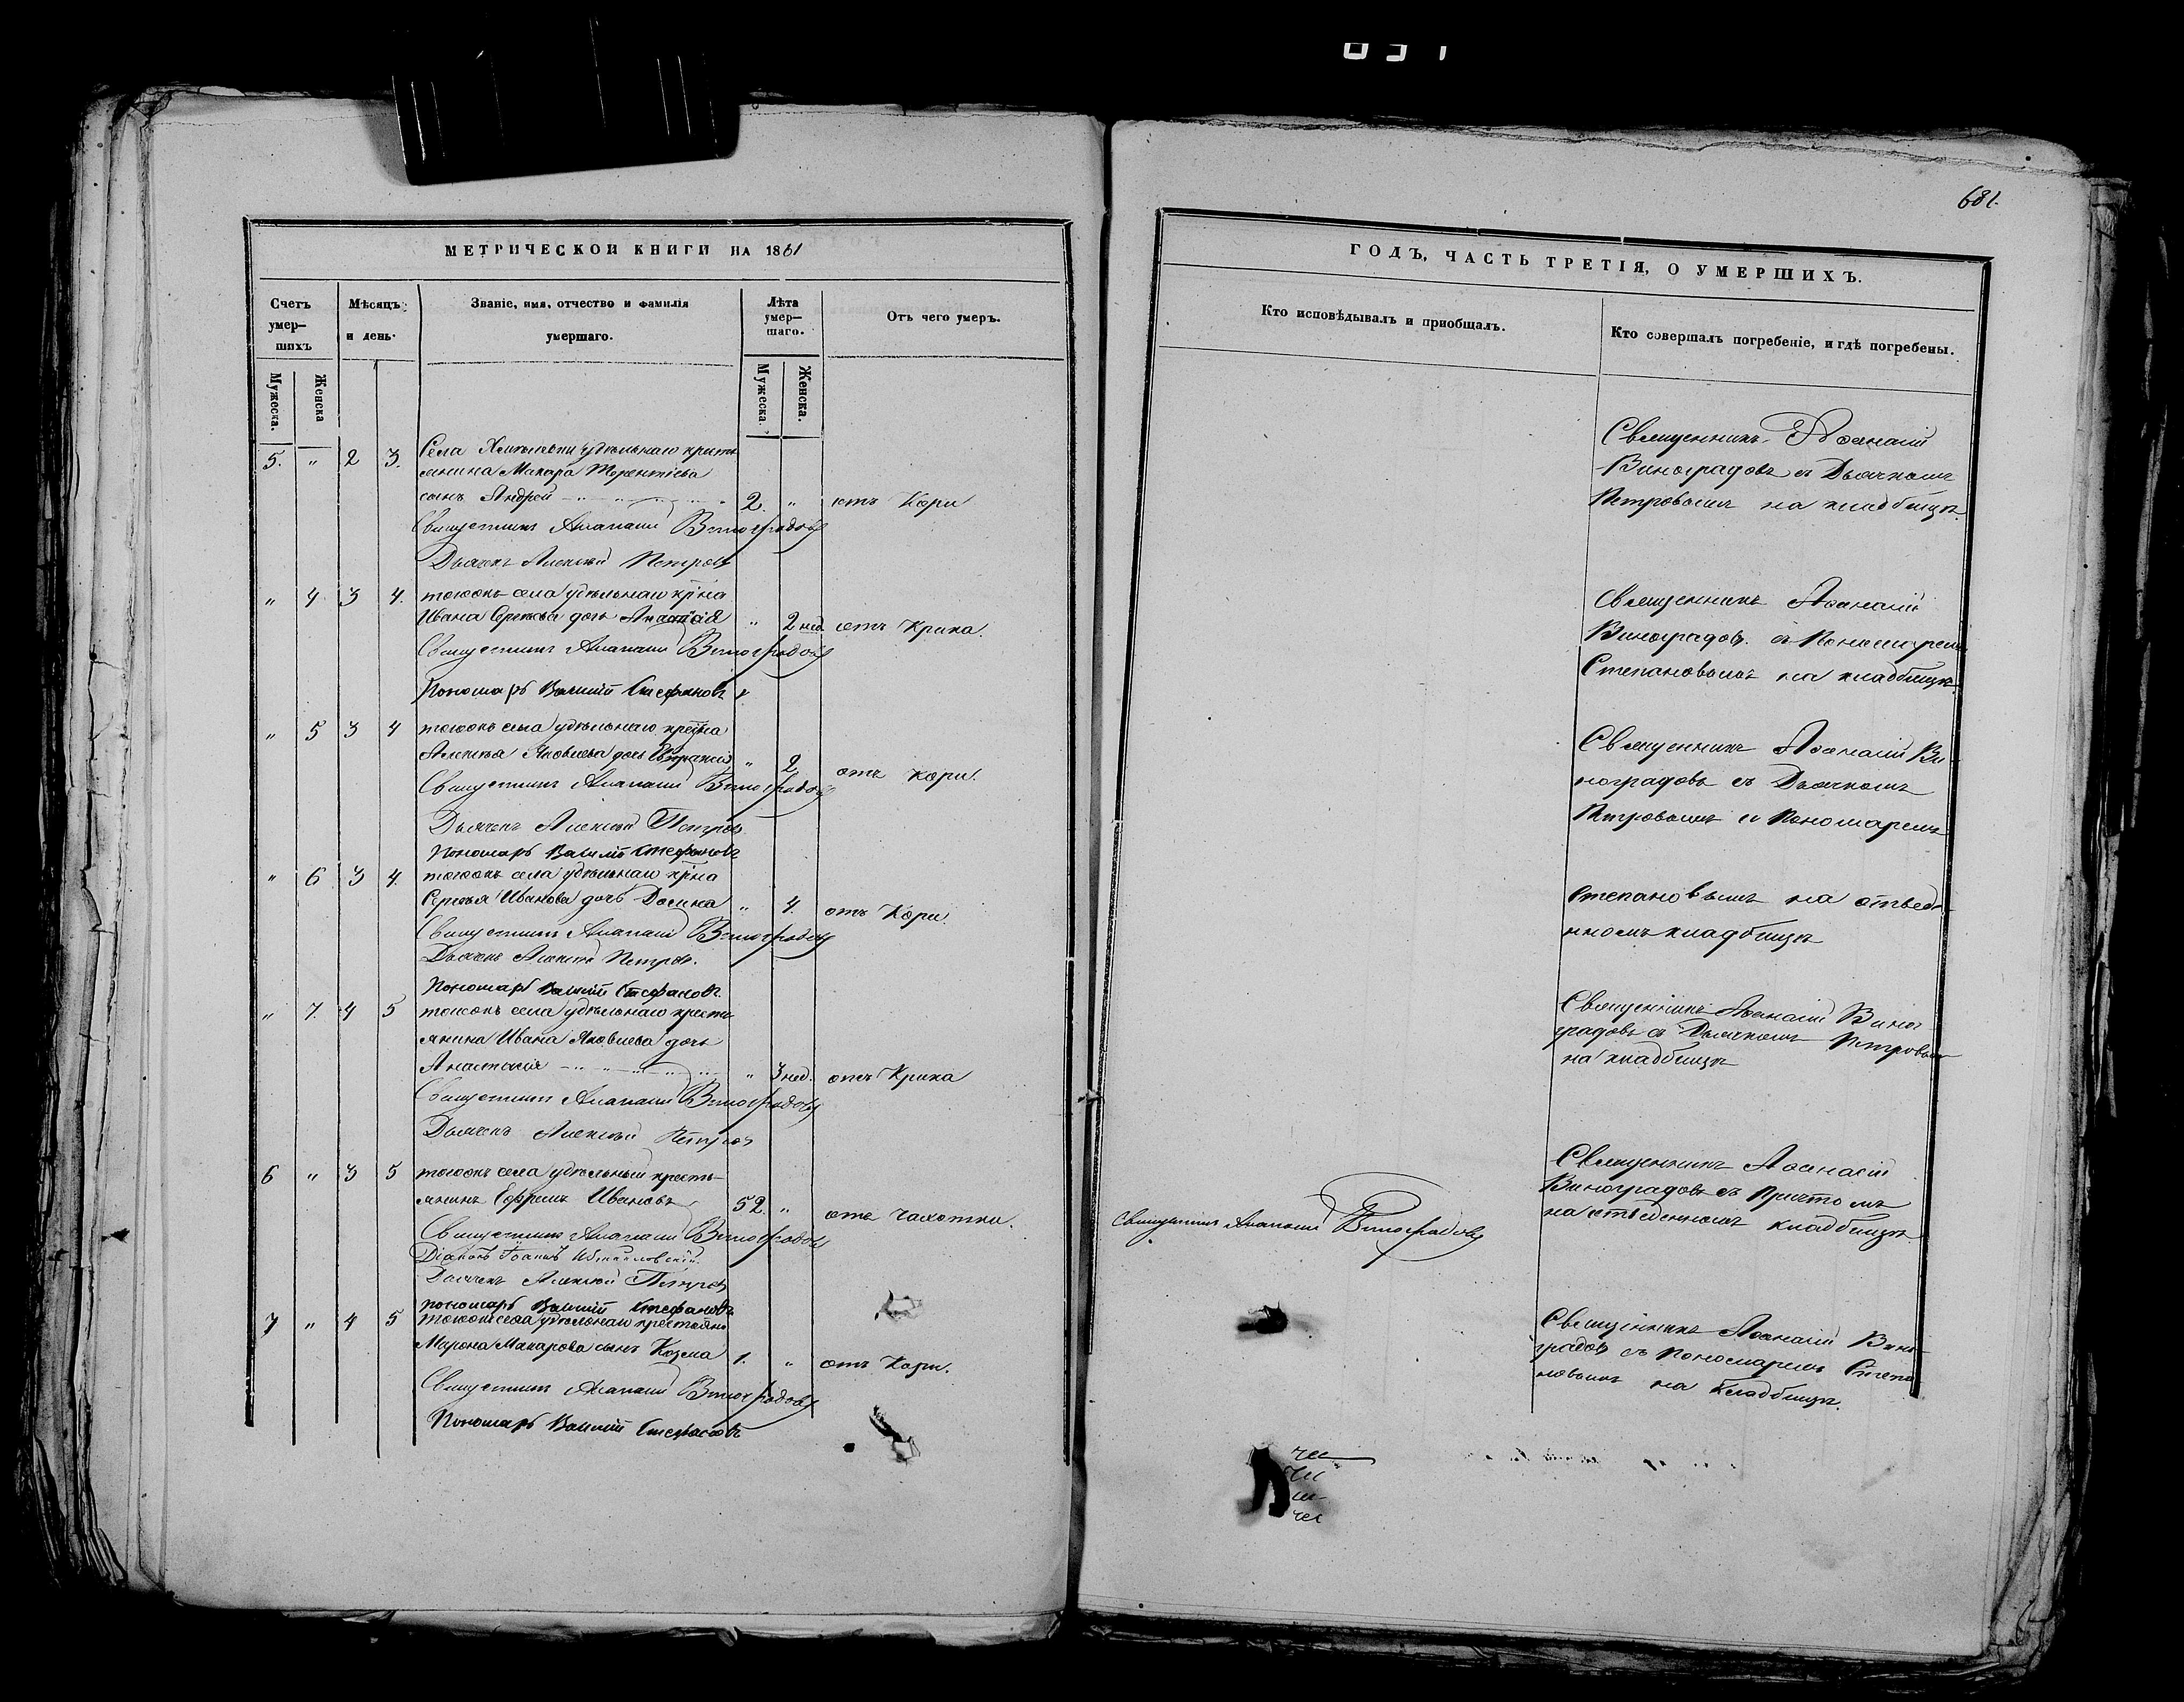 681.
МЕТРИЧЕСКОЙ КНИГИ НА 1861
Счетъ умер–шихъ
Мѣсяцъ и день.
Званіе, имя, отчество и фамилія умершаго.
Лѣта умер–шаго.
Отъ чего умеръ.
Мужеска.
Женска
Мужеска.
Женска.
5. " 2 3. Села удѣльнаго кресть
янина Макара Терентіева
сынъ Андрей 2. " отъ Кори
Священникъ Афанасій Виноградовъ
Дьячекъ Алексѣй Петровъ
" 4 3 4. тогожъ села удѣльнаго кр-на
Ивана Сергѣева дочь Анастасія " 2 нед. отъ Крика.
Священникъ Афанасій Виноградовъ
Пономарь Василій Стефановъ
" 5 3 4 тогожъ села удѣльнаго
Алексѣя Яковлева дочь " 2 отъ кори.
Священникъ Афанасій Виноградовъ
Дьячекъ Алексѣй Петровъ
Пономарь Василій Стефановъ
" 6 3 4. тогожъ села удѣльнаго кр-на
Сергѣя Иванова дочь " 4. отъ Кори.
Священникъ Афанасій Виноградовъ
Дьячекъ Алексѣй Петровъ.
Пономарь Василій Стефановъ.
" 7. 4 5 тогожъ села удѣльнаго кресть
янина Ивана Яковлева дочь
Анастасія " 3 нед. отъ Крика
Священникъ Афанасій Виноградовъ
Дьячекъ Алексѣй Петровъ
6 " 3 5 тогожъ села удѣльный кресть–
янинъ Ефремъ Ивановъ 52. " отъ Чахотки.
Священникъ Афанасій Виноградовъ
Діаконъ Іоаннъ
Дьячекъ Алексѣй Петровъ
пономарь Василій Стефановъ
7 " 4 5 тогожъ села удѣльнаго крестьяни
Мирона Макарова сынъ Козма 1. " отъ Кори.
Священникъ Афанасій Виноградовъ
Пономарь Василій Стефановъ
ГОДЪ, ЧАСТЬ ТРЕТІЯ, О УМЕРШИХЪ.
Кто исповѣдывалъ и пріобщалъ.
Кто совершалъ погребеніе, и гдѣ погребены.
Священникъ Аѳанасій
Виноградовъ съ Дьячкомъ
Петровымъ на кладбищѣ.
Священникъ Аѳанасій
Виноградовъ. съ Пономаремъ
Степановымъ на кладбищѣ
Священникъ Аѳанасій Ви
ноградовъ съ Дьячкомъ
Петровымъ и Пономаремъ
Степановымъ на отведе–
нномъ кладбищѣ
Священникъ Аѳанасій Вино
градовъ съ Дьячкомъ Петровым
на кладбищѣ
Священникъ Аѳанасій
Виноградовъ съ Причтомъ
на отведенномъ кладбищѣ
Священникъ Афанасій Виноградовъ
Священникъ Аѳанасій Вино–
градовъ съ Пономаремъ Степа
новымъ на Кладбищѣ.